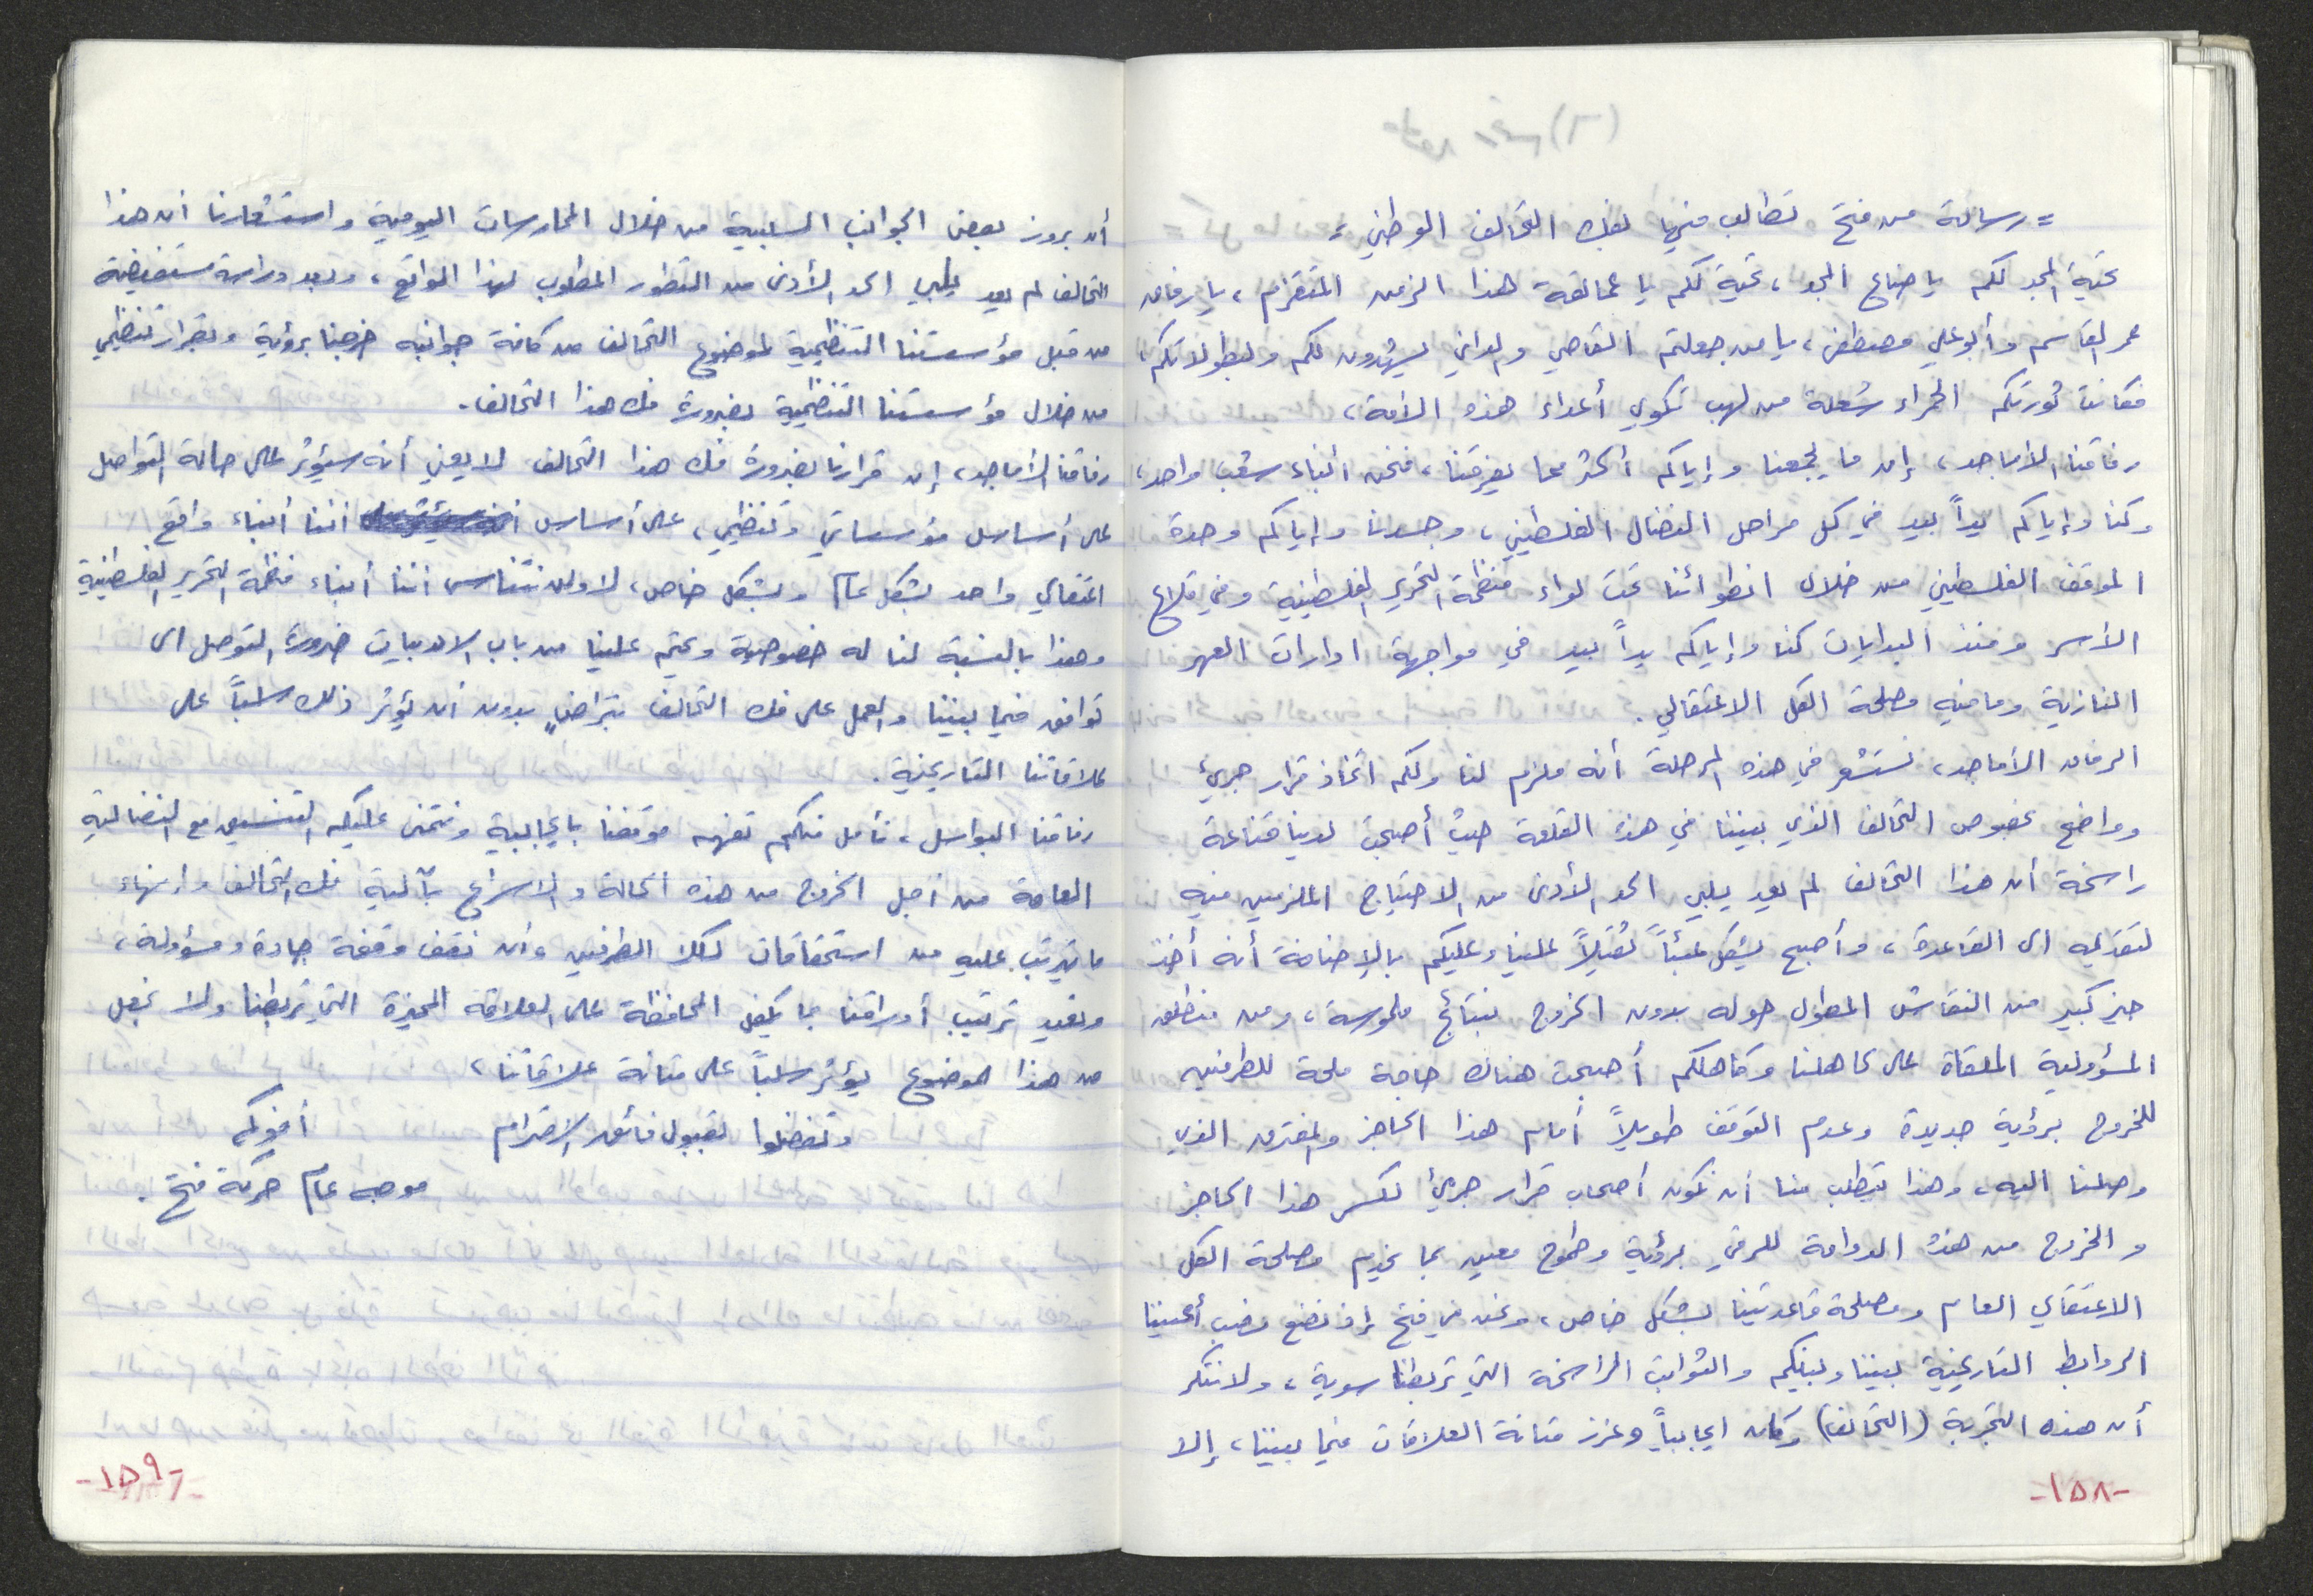 = رسالة من فتح تطالب فيها بفك التحالف الوطني =
تحية المجد لكم يا صناع المجد، تحية لكم يا عمالقة هذا الزمن المتقزم، يا رفاق
عمر القاسم وأبو علي مصطفى، يا من جعلتم القاصي والداني يشهدون لكم ولبطولاتكم،
فكانت ثورتكم الحمراء شعلة من لهب تكوي أعداء هذه الأمة،
رفاقنا الأماجد، إن ما يجمعنا وإياكم أكثر مما يفرقنا، فنحن أبناء شعب واحد،
وكنا وإياكم يداً بيد في كل مراحل النضال الفلسطيني، وجسدنا وإياكم وحدة
الموقف الفلسطيني من خلال انطوائنا تحت لواء منظمة التحرير الفلسطينية وفي قلاع
الأسر ومنذ البدايات كنا وإياكم يداً بيد في مواجهة ادارات القهر
النازية وما فيه مصلحة الكل الاعتقالي.
الرفاق الأماجد، نستشعر في هذه المرحلة أنه ملزم لنا ولكم اتخاذ قرار جريئ
وواضح بخصوص التحالف الذي بيننا في هذه القلعة حيث أصبحت لدينا قناعة
راسخة أن هذا التحالف لم يعد يلبي الحد الأدنى من الاحتياج الملزمين فيه
لتقديمه الى القاعدة، وأصبح يشكل عبئاً ثقيلاً علينا وعليكم بالإضافة أنه أخذ
حيز كبير من النقاش المطول حوله بدون الخروج بنتائج ملموسة، ومن منطلق
المسؤولية الملقاة على كاهلنا وكاهلكم أصبحت هناك حاجة ملحة للطرفين
للخروج برؤية جديدة وعدم التوقف طويلاً أمام هذا الحاجز والمفترق الذي
وصلنا اليه، وهذا يتطلب منا أن نكون أصحاب قرار جريئ لكسر هذا الحاجز
والخروج من هذه الدوامة للرقي برؤية وطموح معين بما يخدم مصلحة الكل
الاعتقالي العام ومصلحة قاعدتينا بشكل خاص، ونحن في فتح إذ نضع نصب أعيننا
الروابط التاريخية بيننا وبينكم والثوابت الراسخة التي تربطنا سوية، ولا ننكر
أن هذه التجربة (التحالف) كان ايجابياً وعزز متانة العلاقات فيما بيننا، إلا
-١٥٨-
أن بروز بعض الجوانب السلبية من خلال الممارسات اليومية واستشعارنا أن هذا
التحالف لم يعد يلبي الحد الأدنى من التطور المطلوب لهذا الواقع، وبعد دراسة مستفيضة
من قبل مؤسستنا التنظيمية لموضوع التحالف من كافة جوانبه خرجنا برؤية وبقرار تنظيمي
من خلال مؤسستنا التنظيمية بضرورة فك هذا التحالف.
رفاقنا الأماجد، إن قرارنا بضرورة فك هذا التحالف لا يعني أنه سيؤثر على حالة التواصل
على أساس مؤسساتي وتنظيمي، على أساس اننا أبناء واقع
اعتقالي واحد بشكل عام وبشكل خاص، لا ولن نتناسى اننا أبناء منظمة التحرير الفلسطينية
وهذا بالنسبة لنا له خصوصية وتحتم علينا من باب الادبيات ضرورة التوصل الى
توافق فيما بيننا والعمل على فك التحالف بتراضٍ بدون أن يؤثر ذلك سلباً على
علاقاتنا التاريخية.
رفاقنا البواسل، نأمل منكم تفهم موقفنا بايجابية ونتمنى عليكم التنسيق مع النضالية
العامة من أجل الخروج من هذه الحالة والاسراع بآلية فك التحالف وإنهاء
ما يترتب عليه من استحقاقات لكلا الطرفين وأن نقف وقفة جادة ومسؤولة،
ونعيد ترتيب أوراقنا بما يكفل المحافظة على العلاقة المميزة التي تربطنا ولا نجعل
من هذا الموضوع يؤثر سلباً على متانة علاقاتنا،
وتفضلوا بقبول فائق الاحترام أخوكم
موجه عام حركة فتح.
-١٥٩-